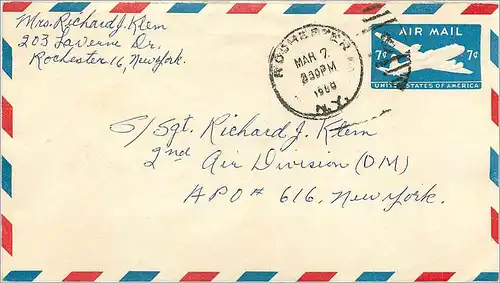 Mrs. Richard J. Klem
203 Laverne Dr.
Rochester 16, New York.
ROCHESTER
MAR 7
830PM
1960
N.Y.
AIR MAIL
7¢ 7¢
UNITED STATES OF AMERICA
S/Sgt. Richard J. Klem
2nd Air Division (DM)
APO# 616, New York.